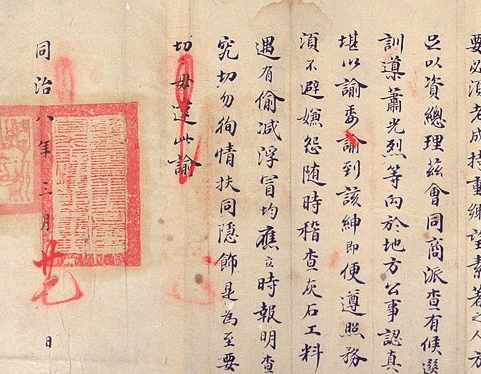 要必須老成持重鄉望素著之人方
足以資總理茲會同商派查有候選
訓導蕭光烈等向於地方公事認真
堪以諭委諭到該紳即便遵照務
須不避嫌怨随時稽查灰石工料
遇有偷减浮冒均應立時報明查
究切勿徇情扶同隱飾是為至要
切毋違此諭
同治八年三月廿日